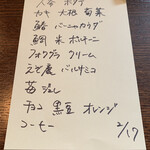 カキ 大根 菊菜
鰆 バーニャカウダ
鯛 米 ポルチーニ
フォアグラ クリーム
えぞ鹿 バルサミコ
苺 ジュレ
チョコ 黒豆 オレンジ
コーヒー
2/17